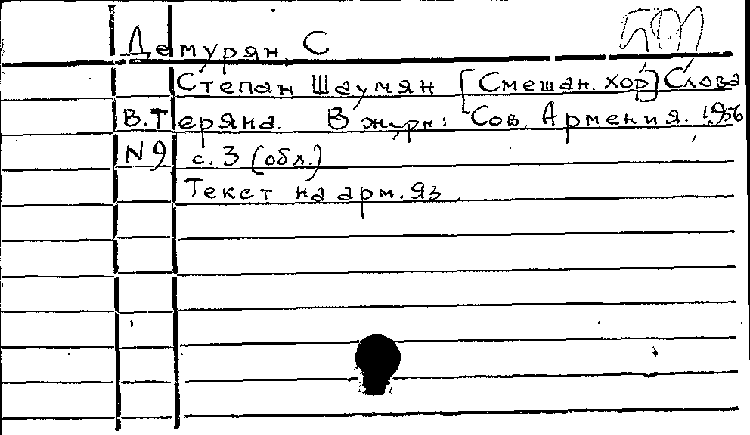 Демурян С
Степан Шаумян [Смешан. хор] Слова
В. Теряна. В журн: Сов. Армения. 1956
N 9 с. 3 (обл.)
Текст на арм. яз.